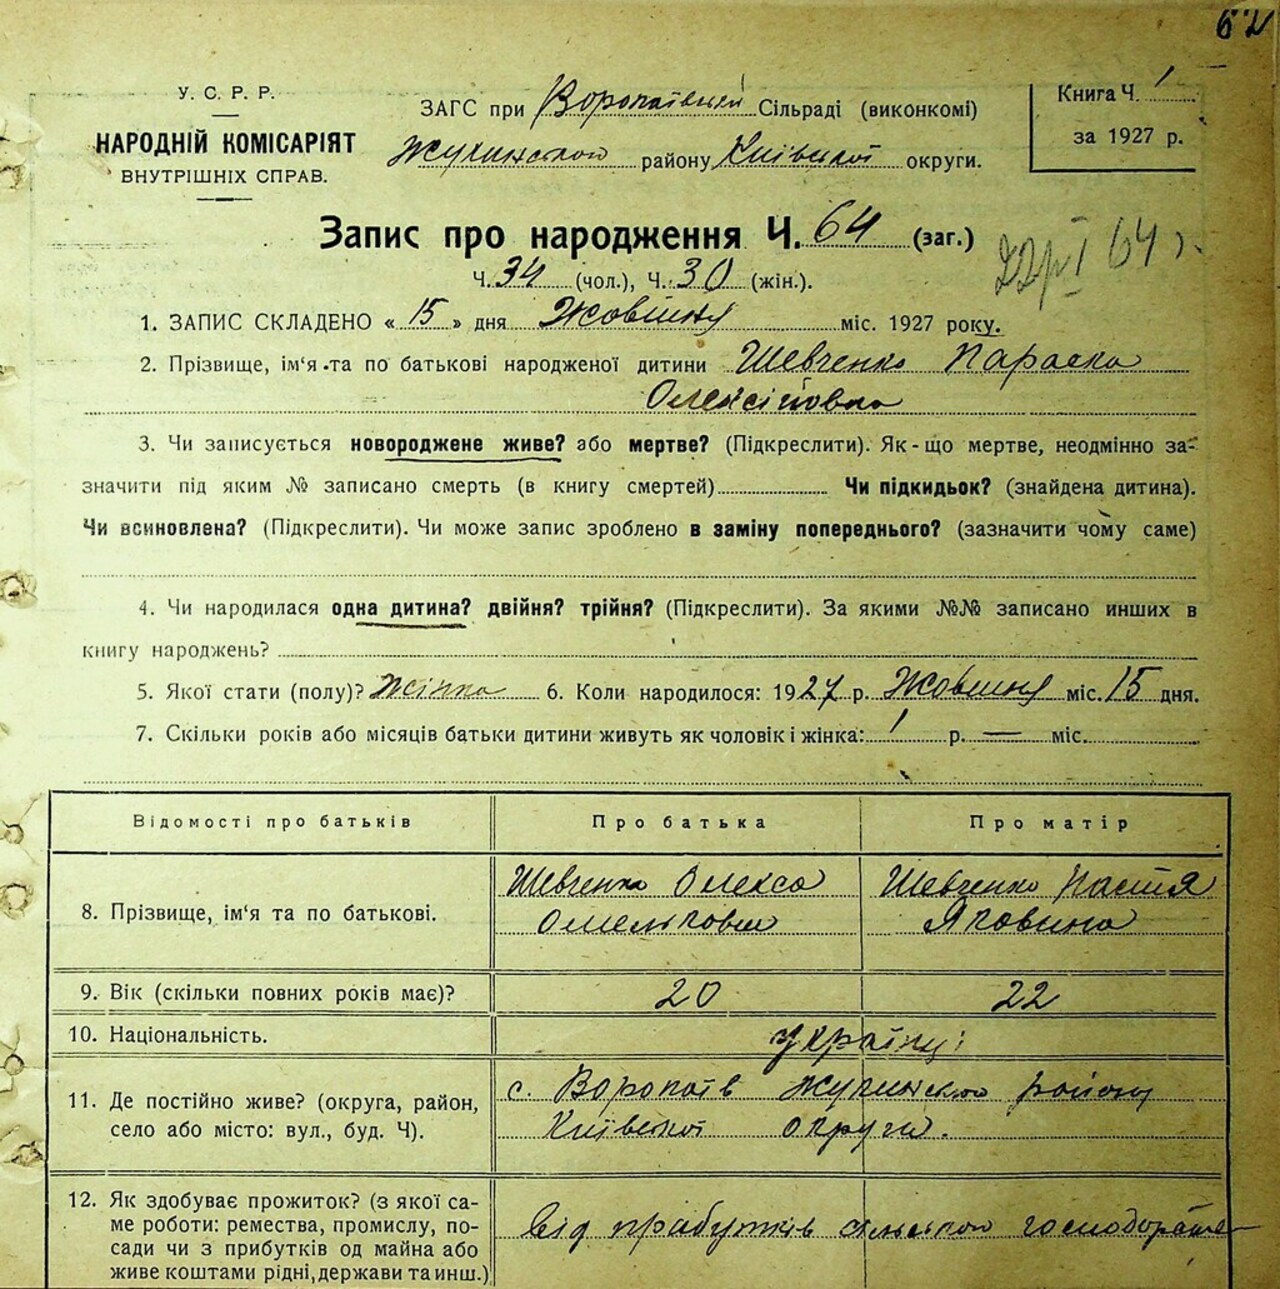 62
У. С. Р. Р.
НАРОДНІЙ КОМІСАРІЯТ
ВНУТРІШНІХ СПРАВ.
ЗАГС при Воропаївській Сільраді (виконкомі)
Жукинського району Київської округи.
Книга Ч. 1
за 1927 р.
Запис про народження Ч. 64 (заг.)
64
Ч. 34 (чол.), Ч. 30 (жін.).
1. ЗАПИС СКЛАДЕНО « 15 » дня Жовтня міс. 1927 року.
2. Прізвище, ім'я та по батькові народженої дитини Шевченко Параска
Олексіївна
3. Чи записується новороджене живе? або мертве? (Підкреслити). Як-що мертве, неодмінно за-
значити під яким № записано смерть (в книгу смертей) Чи підкидьок? (знайдена дитина).
Чи всиновлена? (Підкреслити). Чи може запис зроблено в заміну попереднього? (зазначити чому саме)
4. Чи народилася одна дитина? двійня? трійня? (Підкреслити). За якими №№ записано инших в
книгу народжень?
5. Якої стати (полу)? Жінка 6. Коли народилося: 1927 р. Жовтня міс. 15 дня.
7. Скільки років або місяців батьки дитини живуть як чоловік і жінка: 1 р. — міс.
Відомості про батьків Про батька Про матір
8. Прізвище, ім'я та по батькові.
Шевченко Олекса
Омелькович
Шевченко Настя
Яковина
9. Вік (скільки повних років має)? 20 22
10. Національність. Україці
11. Де постійно живе? (округа, район,
село або місто: вул., буд. Ч).
с. Воропаїв Жукинського району
Київської округи.
12. Як здобуває прожиток? (з якої са-
ме роботи: ремества, промислу, по-
сади чи з прибутків од майна або
живе коштами рідні, держави та инш.)
Від прибутків сільського